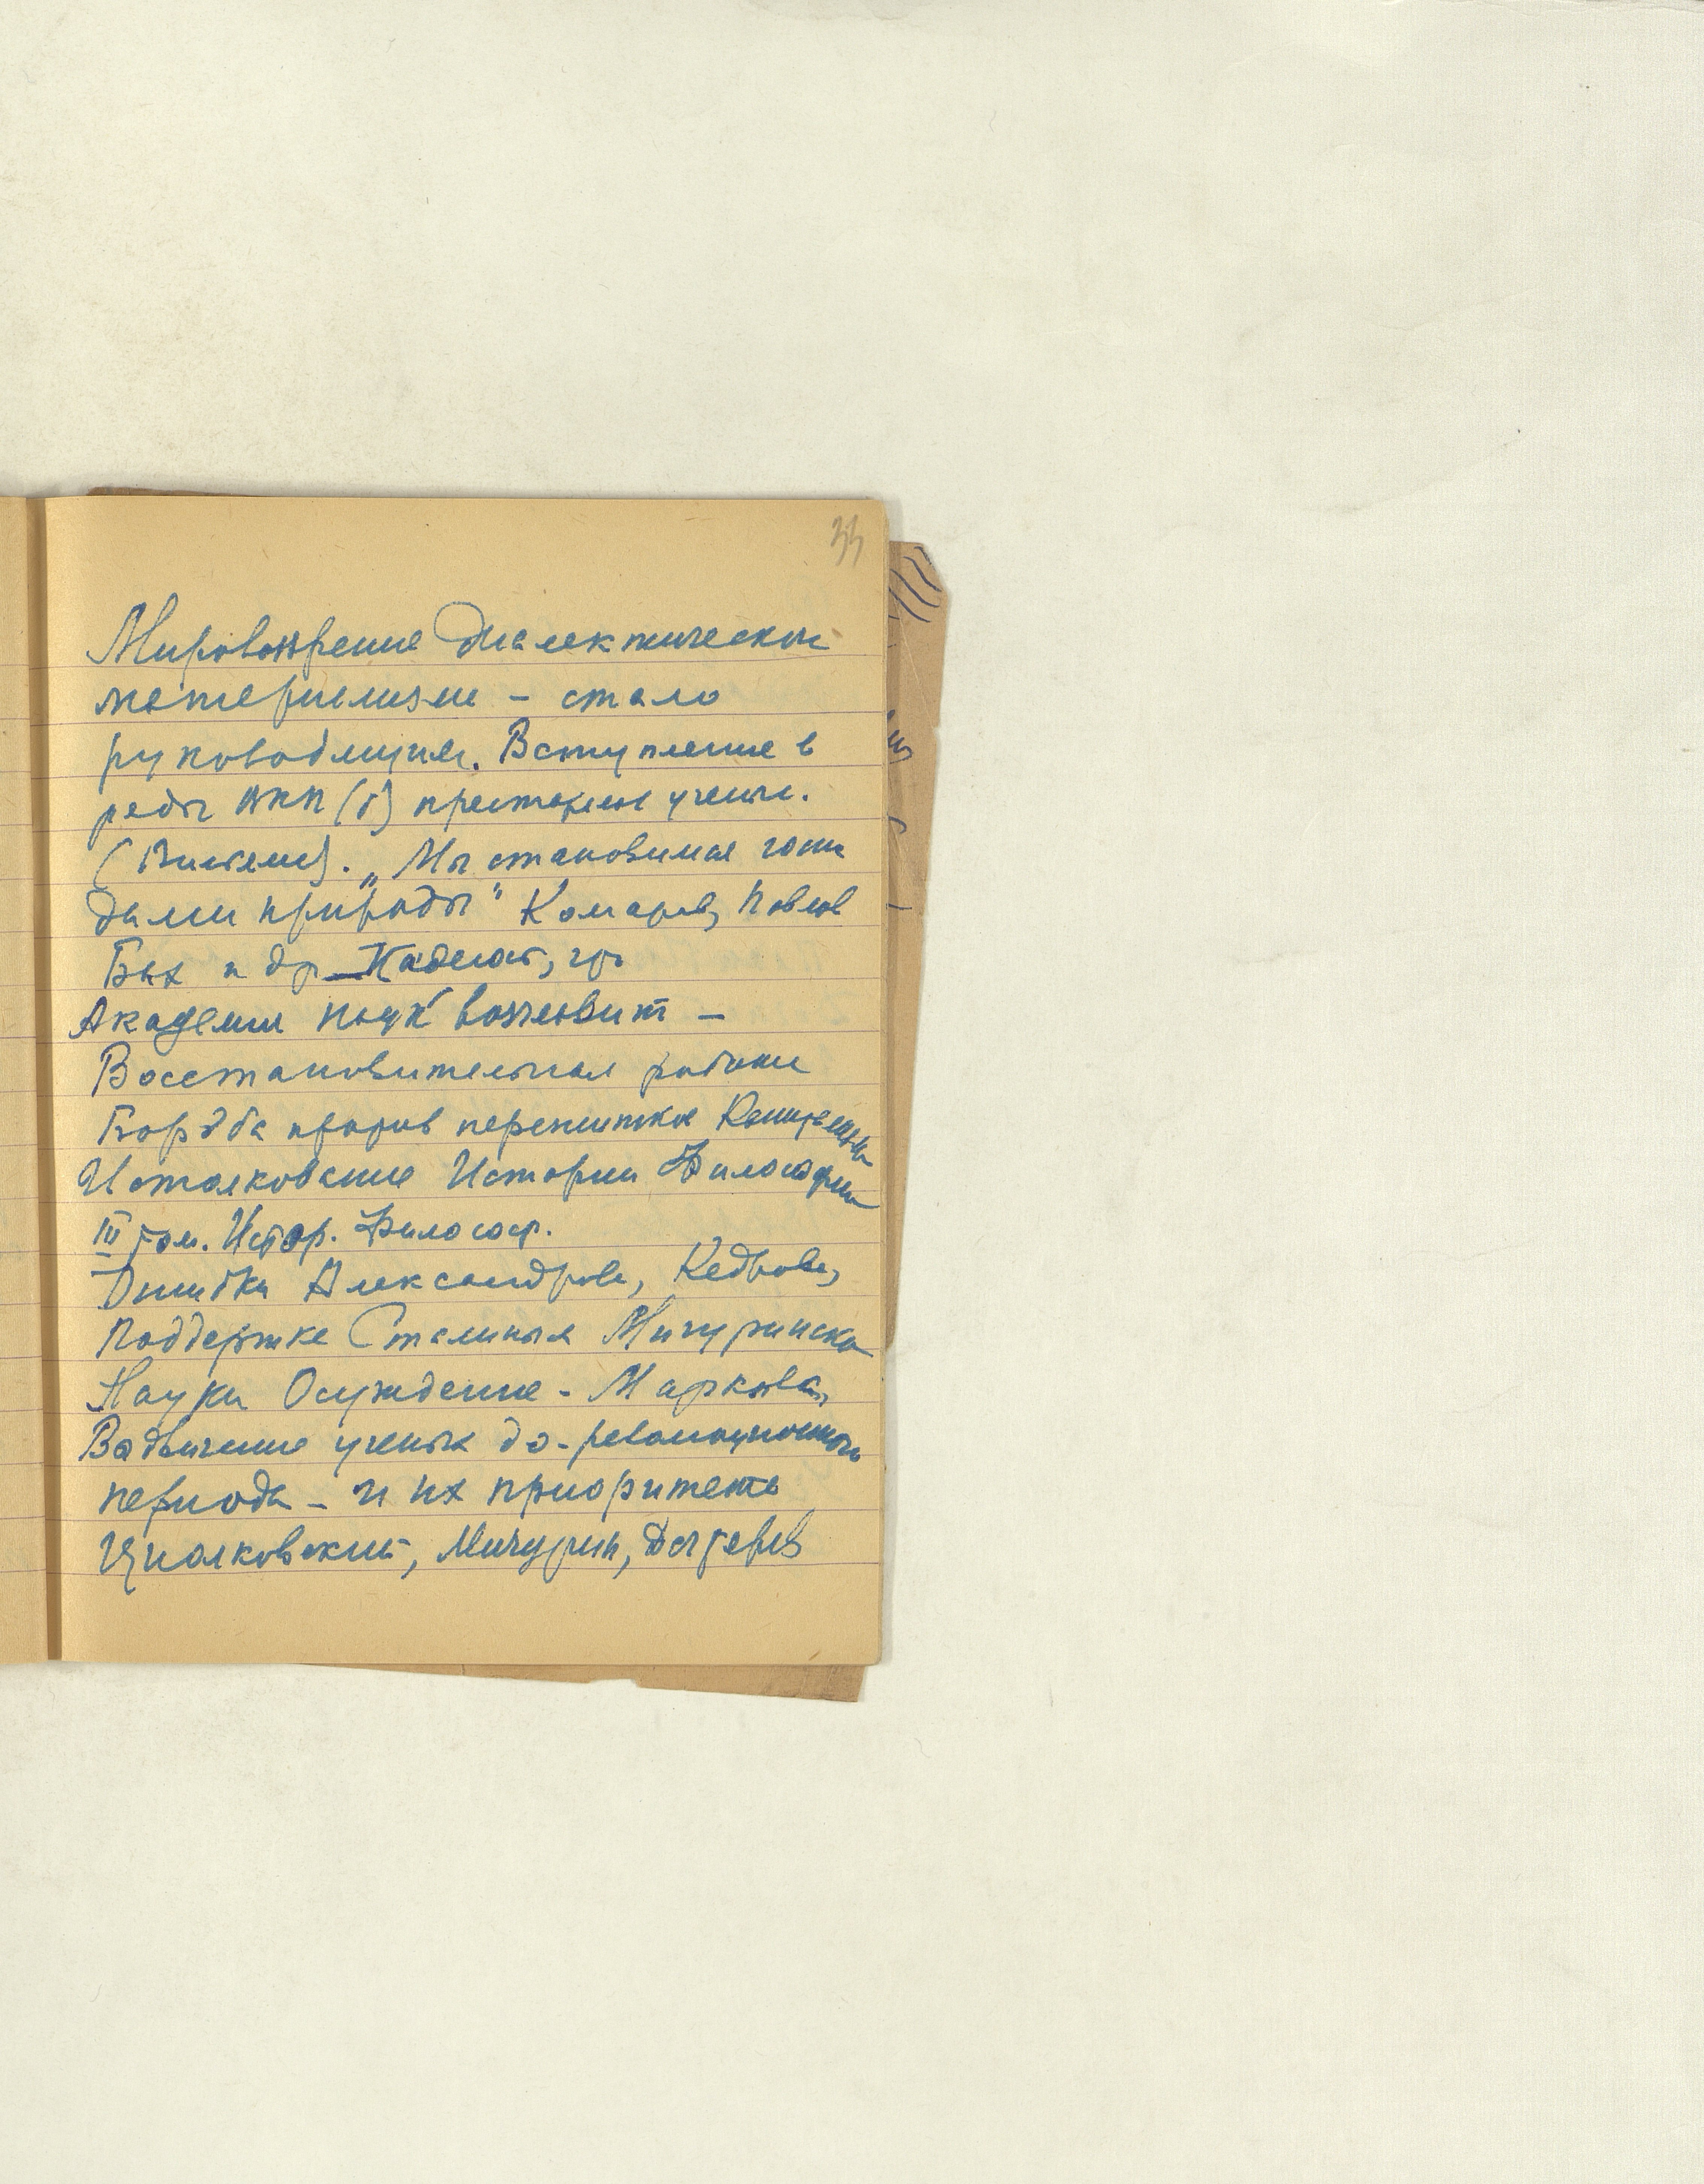 33
Мировоззрение Диалектическом
материализме – стало
руководящим. Вступление в
ряды ВКП(б) престарелые ученые.
(Вильямс). „Мы становимся госпо
дами природы" Комаров, Павлов
Бах и др
Академия наук возглавит –
Восстановительная работа
Борьба против пережитков Капитализма
Истолкование Истории Философии
III том. Истор. Философ.
Ошибки Александрова, Кедрова,
Поддержке Сталиным Мичуринско
Науки Осуждение - Маркова,
ученых до-революционного
периода – и их приоритета
Циолковский, Мичурин, Дегтерев